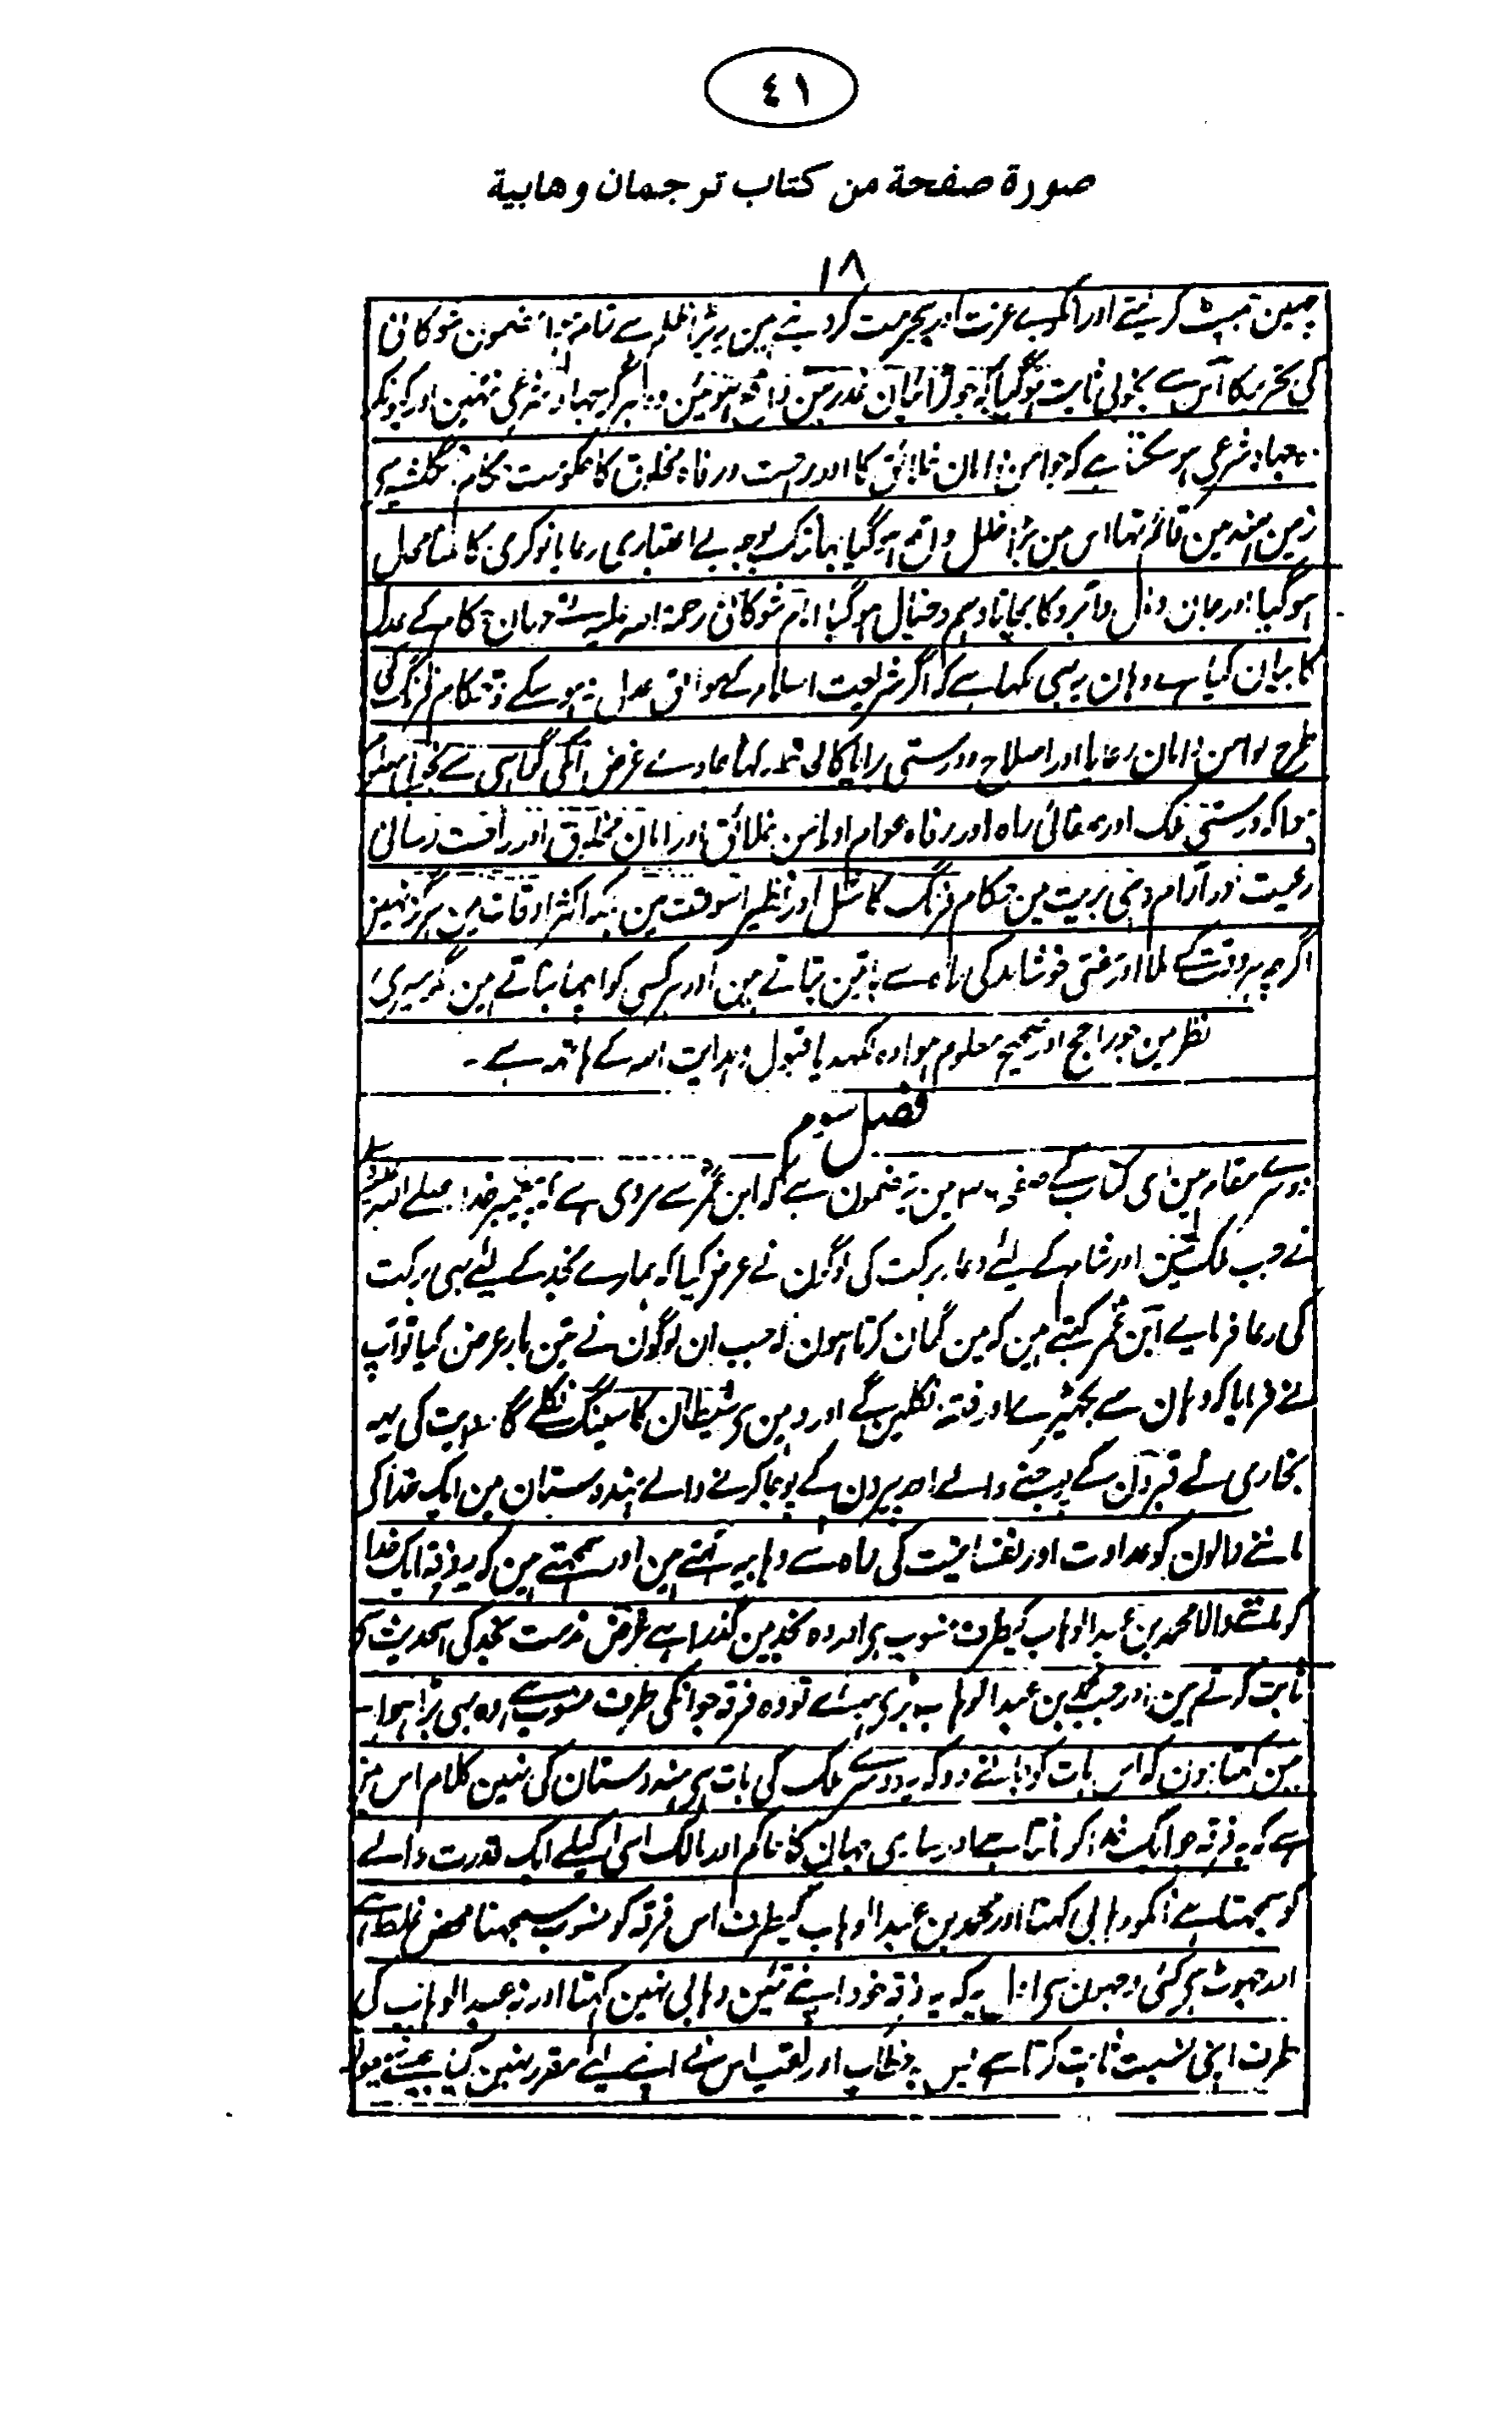 ٤١
صورة صفحة من كتاب ترجمان وهابية
١٨
چہین جہپٹ کر لینے اور انکو بے عزت اور بیحرمت کر دینے مین بڑا ظلم ہے تمام ہوا مضمون شوکانی
کی تحریر کا اس سے بخوبی ثابت ہو گیا کہ جو لڑائیان غدر مین واقع ہوئین وہ ہرگز جہاد شرعی نہین اور کیونکر
وہ جہاد شرعی ہو سکتا ہے کہ جو امن وامان خلائق کا اور راحت ورفاہ مخلوق کا حکومت حکام انگلشیہ سے
زمین ہند مین قائم تہا اس مین بڑا خلل واقع ہو گیا یہانتک بوجہ بے اعتباری رعایا نوکری کا ملنا محال
ہو گیا اور جان ومال وآبرو کا بچانا وہم وخیال ہو گیا امام شوکانی رحمۃ اللہ علیہ نے جہان حکام کے عدل
کا بیان کیا ہے وہان یہ بہی کہا ہے کہ اگر شریعت اسلام کے موافق عدل نہ ہو سکے تو حکام فرنگ کی
طرح امن وامان رعایا اور اصلاح ودرستی برایا کا لحاظ رکہا جاوے غرض انکی گواہی سے بخوبی معلوم
ہوا کہ درستی ملک اور صفائی راہ اور رفاہ عوام اور امن خلائق اور امان مخلوق اور راحت رسانی
رعیت اور آرام دہی بریت مین حکام فرنگ کا مثل اور نظیر اسوقت مین بلکہ اکثر اوقات مین ہرگز نہین
اگرچہ ہر وقت کے ملا اور مفتی خوشامد کی راہ سے باتین بناتے ہین اور ہر کسی کو اچہا بتاتے ہین مگر میری
نظر مین جو راجح اور صحیح معلوم ہوا وہ لکہدیا قبول وہدایت اللہ کے ہاتھ ہے -
فصل سوم
دوسرے مقام مین اسی کتاب کے صفحہ مین یہ مضمون ہے کہ ابن عمر سے مروی ہے کہ پیغمبر خدا صلے اللہ علیہ وسلم
نے جب ملک یمن اور شام کے لئے دعا برکت کی لوگون نے عرض کیا کہ ہمارے نجد کے لیئے بہی برکت
کی دعا فرمایے ابن عمر کہتے ہین کہ مین گمان کرتا ہون کہ جب ان لوگون نے تین بار عرض کیا تو آپ
نے فرمایا کہ وہان سے بکہیڑے اور فتنے نکلین گے اور وہین سے شیطان کا سینگ نکلے گا روایت کی یہ
بخاری نے قبرون کے پوجنے والے اور پیرون کے پوجا کرنے والے ہندوستان مین ایک خدا کو
ماننے والون کو عداوت اور نفسانیت کی راہ سے وہابیہ کہتے ہین اور سمجہتے ہین کہ یہ فرقہ ایک خدا
کو ماننے والا محمد بن عبد الوہاب کیطرف منسوب ہی اور وہ نجد مین گذرا ہے غرض مذمت نجد کی اس حدیث سے
ثابت کرتے ہین اور جب محمد بن عبد الوہاب بری ہوے تو وہ فرقہ جو انکی طرف منسوب ہے وہ بہی برا ہوا -
مین کہتا ہون کہ اس بات کو جانے دو کہ یہ دوسرے ملک کی بات ہی ہندوستان کی نہین کلام اس مین
ہے کہ یہ فرقہ جو ایک خدا کو مانتا ہے اور ساری جہان کا حاکم اور مالک اسی اکیلے ایک قدرت والے
کو سمجہتا ہے انکو وہابی کہنا اور محمد بن عبد الوہاب کیطرف اس فرقہ کو منسوب سمجہنا محض غلط ہے
اور جہوٹ ہی کئی وجہون سے اول یہ کہ یہ فرقہ خود اپنے تئین وہابی نہین کہتا اور نہ عبد الوہاب کی
طرف اپنی نسبت ثابت کرتا ہے پس یہ خطاب اور لقب اس نے اپنے لیئے مقرر نہین کیا